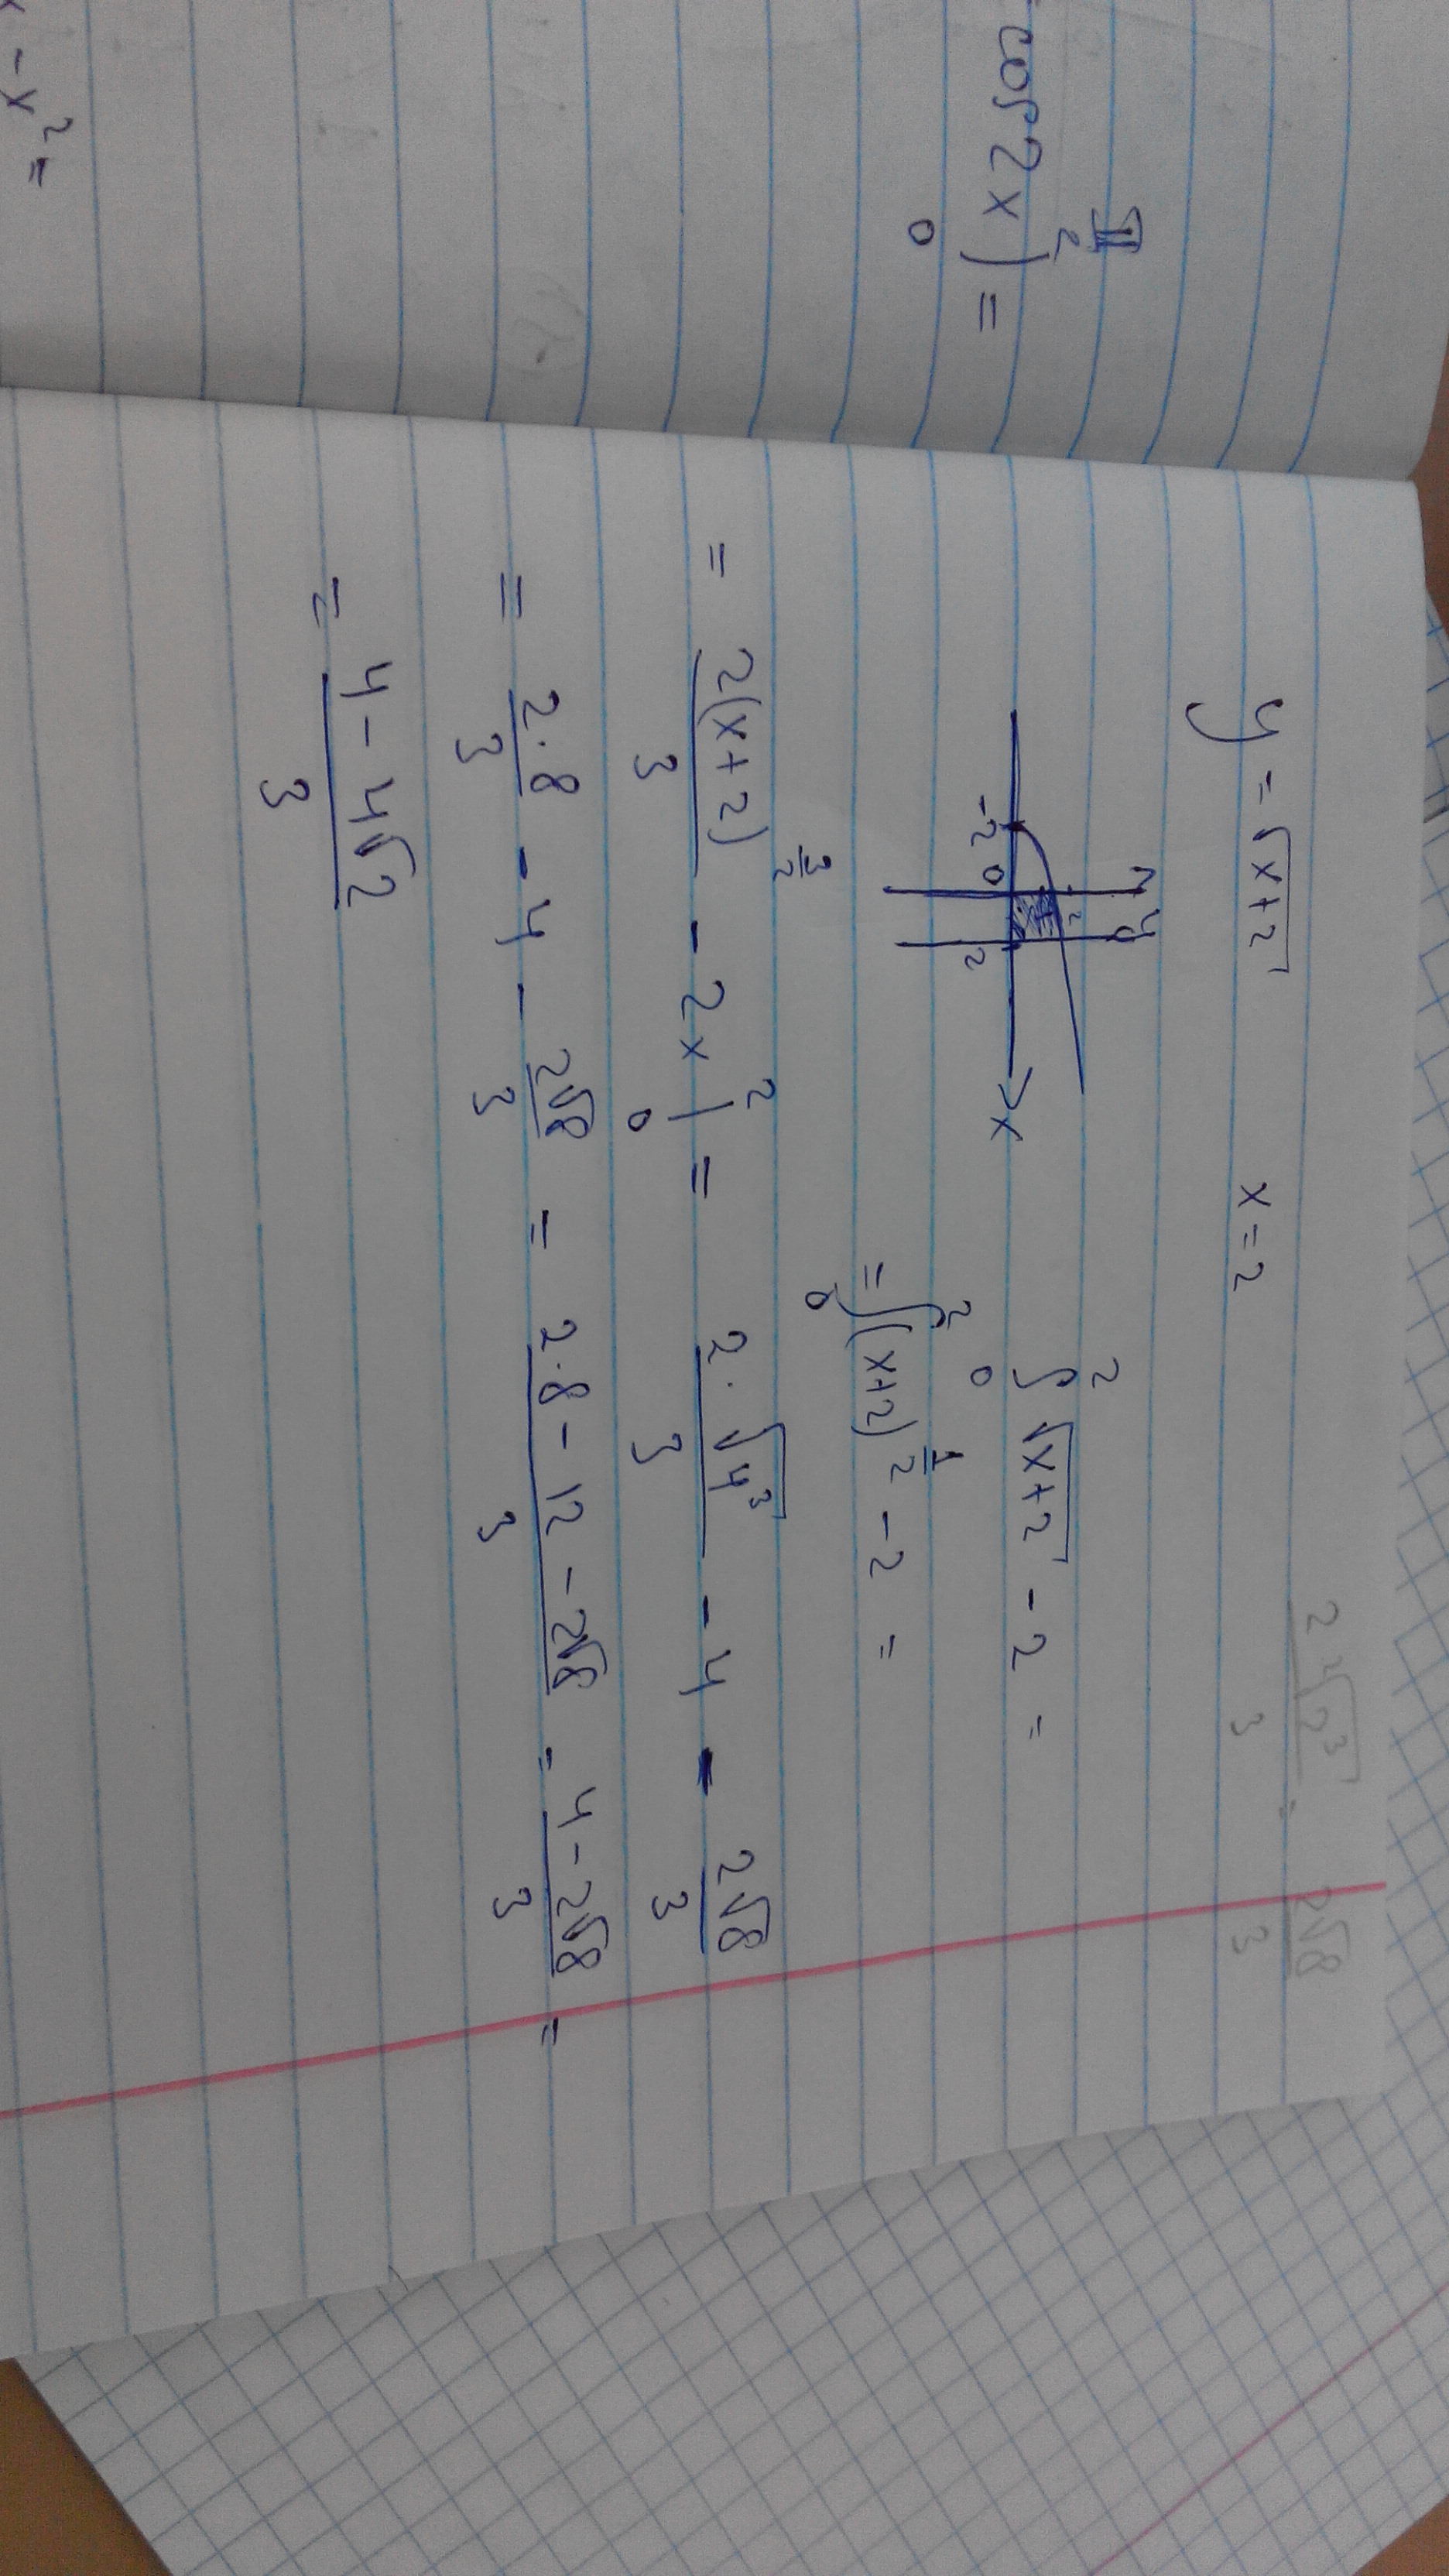 cos 2x) π/2 0 =
- x² =
2√2³/3 = 2√8/3
y = √(x+2)    x = 2
y
2
-2 0 2 x
∫₀² √(x+2) - 2 =
= ∫₀² (x+2)^(1/2) - 2 =
= 2(x+2)^(3/2)/3 - 2x |₀² = 2·√4³/3 - 4 - 2√8/3
= 2·8/3 - 4 - 2√8/3 = (2·8 - 12 - 2√8)/3 = (4 - 2√8)/3 =
= (4 - 4√2)/3